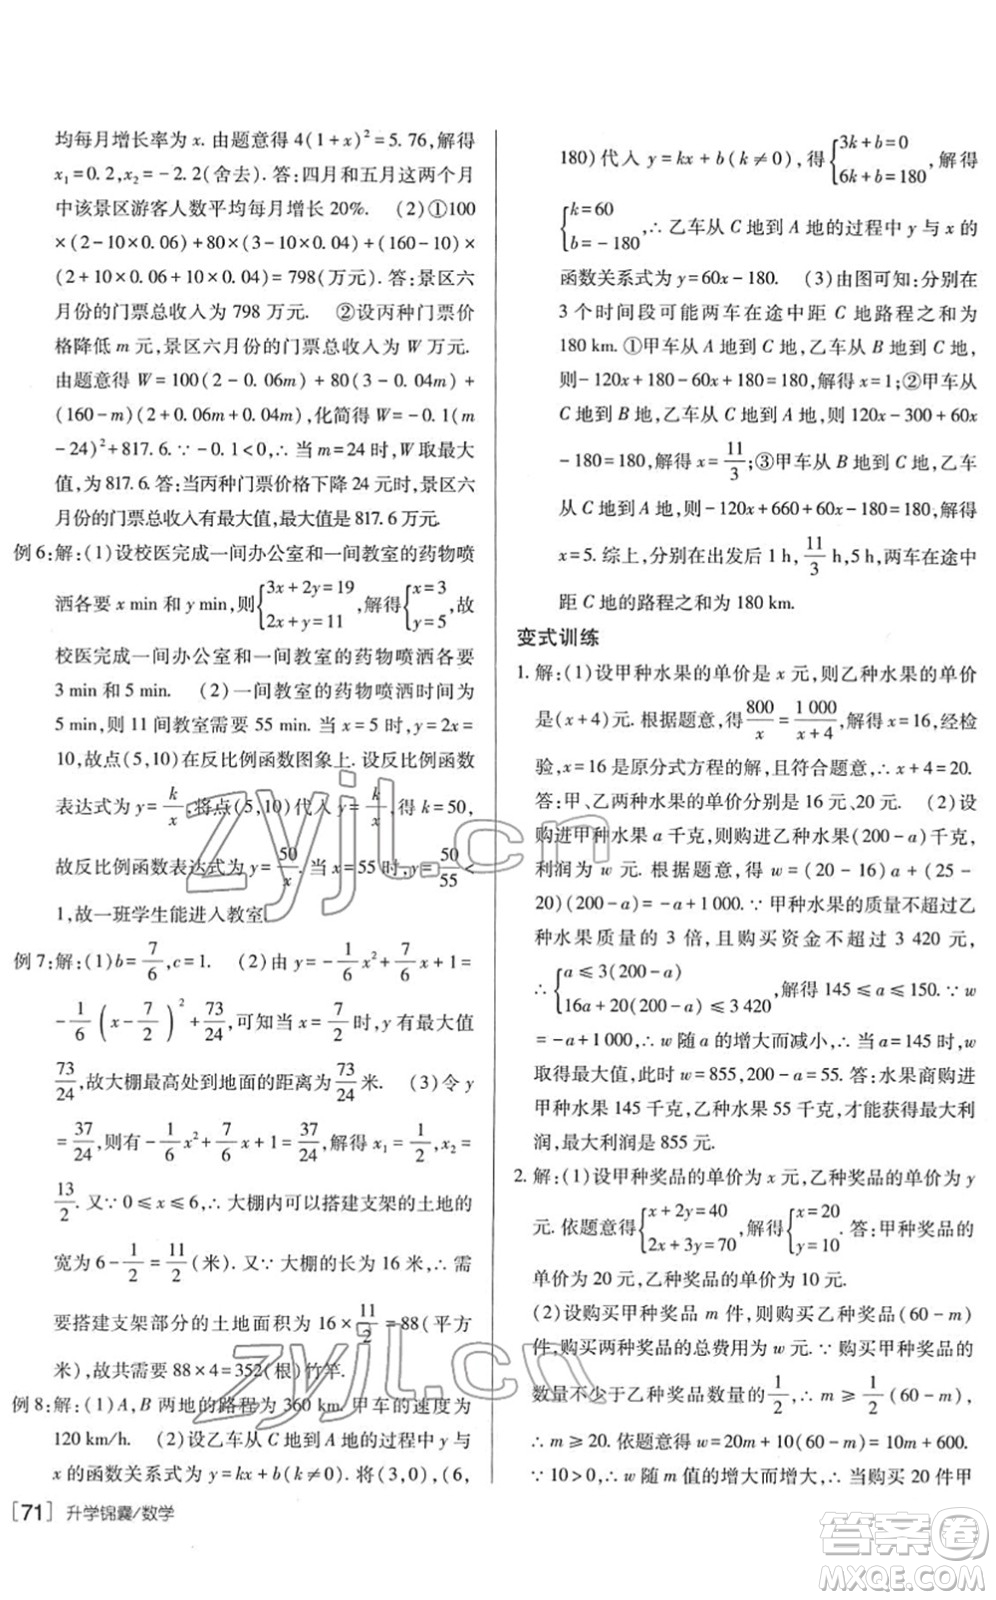 均每月增长率为 x. 由题意得 4(1+x)²=5.76,解得
x₁=0.2,x₂=-2.2(舍去). 答:四月和五月这两个月
中该景区游客人数平均每月增长 20%. (2)①100
×(2-10×0.06)+80×(3-10×0.04)+(160-10)×
(2+10×0.06+10×0.04)=798(万元). 答:景区六
月份的门票总收入为 798 万元. ②设丙种门票价
格降低 m 元,景区六月份的门票总收入为 W 万元.
由题意得 W=100(2-0.06m)+80(3-0.04m)+
(160-m)(2+0.06m+0.04m),化简得 W=-0.1(m
-24)²+817.6. ∵-0.1<0,∴当 m=24 时,W 取最大
值,为 817.6. 答:当丙种门票价格下降 24 元时,景区六
月份的门票总收入有最大值,最大值是 817.6 万元.
例 6:解:(1)设校医完成一间办公室和一间教室的药物喷
洒各要 x min 和 y min,则{3x+2y=19 2x+y=11,解得{x=3 y=5,故
校医完成一间办公室和一间教室的药物喷洒各要
3 min 和 5 min. (2)一间教室的药物喷洒时间为
5 min,则 11 间教室需要 55 min. 当 x=5 时,y=2x=
10,故点(5,10)在反比例函数图象上. 设反比例函数
表达式为 y=k/x,将点(5,10)代入 y=k/x,得 k=50,
故反比例函数表达式为 y=50/x. 当 x=55 时,y=50/55<
1,故一班学生能进入教室.
例 7:解:(1)b=7/6,c=1. (2)由 y=-1/6x²+7/6x+1=
-1/6(x-7/2)²+73/24,可知当 x=7/2时,y 有最大值
73/24,故大棚最高处到地面的距离为73/24米. (3)令 y
=37/24,则有-1/6x²+7/6x+1=37/24,解得 x₁=1/2,x₂=
13/2. 又∵0≤x≤6,∴大棚内可以搭建支架的土地的
宽为 6-1/2=11/2(米). 又∵大棚的长为 16 米,∴需
要搭建支架部分的土地面积为 16×11/2=88(平方
米),故共需要 88×4=352(根)竹竿.
例 8:解:(1)A,B 两地的路程为 360 km. 甲车的速度为
120 km/h. (2)设乙车从 C 地到 A 地的过程中 y 与
x 的函数关系式为 y=kx+b(k≠0). 将(3,0),(6,
[71] 升学锦囊/数学
180)代入 y=kx+b(k≠0),得{3k+b=0 6k+b=180,解得
{k=60 b=-180,∴乙车从 C 地到 A 地的过程中 y 与 x 的
函数关系式为 y=60x-180. (3)由图可知:分别在
3 个时间段可能两车在途中距 C 地路程之和为
180 km. ①甲车从 A 地到 C 地,乙车从 B 地到 C 地,
则-120x+300-60x+180=180,解得 x=1;②甲车从
C 地到 B 地,乙车从 C 地到 A 地,则 120x-300+60x
-180=180,解得 x=11/3;③甲车从 B 地到 C 地,乙车
从 C 地到 A 地,则-120x+660+60x-180=180,解得
x=5. 综上,分别在出发后 1 h,11/3 h,5 h,两车在途中
距 C 地的路程之和为 180 km.
变式训练
1. 解:(1)设甲种水果的单价是 x 元,则乙种水果的单价
是(x+4)元. 根据题意,得800/x=1 000/(x+4),解得 x=16,经检
验,x=16 是原分式方程的解,且符合题意,∴x+4=20.
答:甲、乙两种水果的单价分别是 16 元、20 元. (2)设
购进甲种水果 a 千克,则购进乙种水果(200-a)千克,
利润为 w 元. 根据题意,得 w=(20-16)a+(25-
20)(200-a)=-a+1 000. ∵甲种水果的质量不超过乙
种水果质量的 3 倍,且购买资金不超过 3 420 元,
∴{a≤3(200-a) 16a+20(200-a)≤3 420,解得 145≤a≤150. ∵w
=-a+1 000,∴w 随 a 的增大而减小,∴当 a=145 时,w
取得最大值,此时 w=855,200-a=55. 答:水果商购进
甲种水果 145 千克,乙种水果 55 千克,才能获得最大利
润,最大利润是 855 元.
2. 解:(1)设甲种奖品的单价为 x 元,乙种奖品的单价为 y
元. 依题意得{x+2y=40 2x+3y=70,解得{x=20 y=10. 答:甲种奖品的
单价为 20 元,乙种奖品的单价为 10 元.
(2)设购买甲种奖品 m 件,则购买乙种奖品(60-m)
件,购买两种奖品的总费用为 w 元. ∵购买甲种奖品的
数量不少于乙种奖品数量的1/2,∴m≥1/2(60-m),
∴m≥20. 依题意得 w=20m+10(60-m)=10m+600.
∵10>0,∴w 随 m 值的增大而增大,∴当购买 20 件甲
zyjl.cn
zyjl.cn
答案圈
MXQE.COM